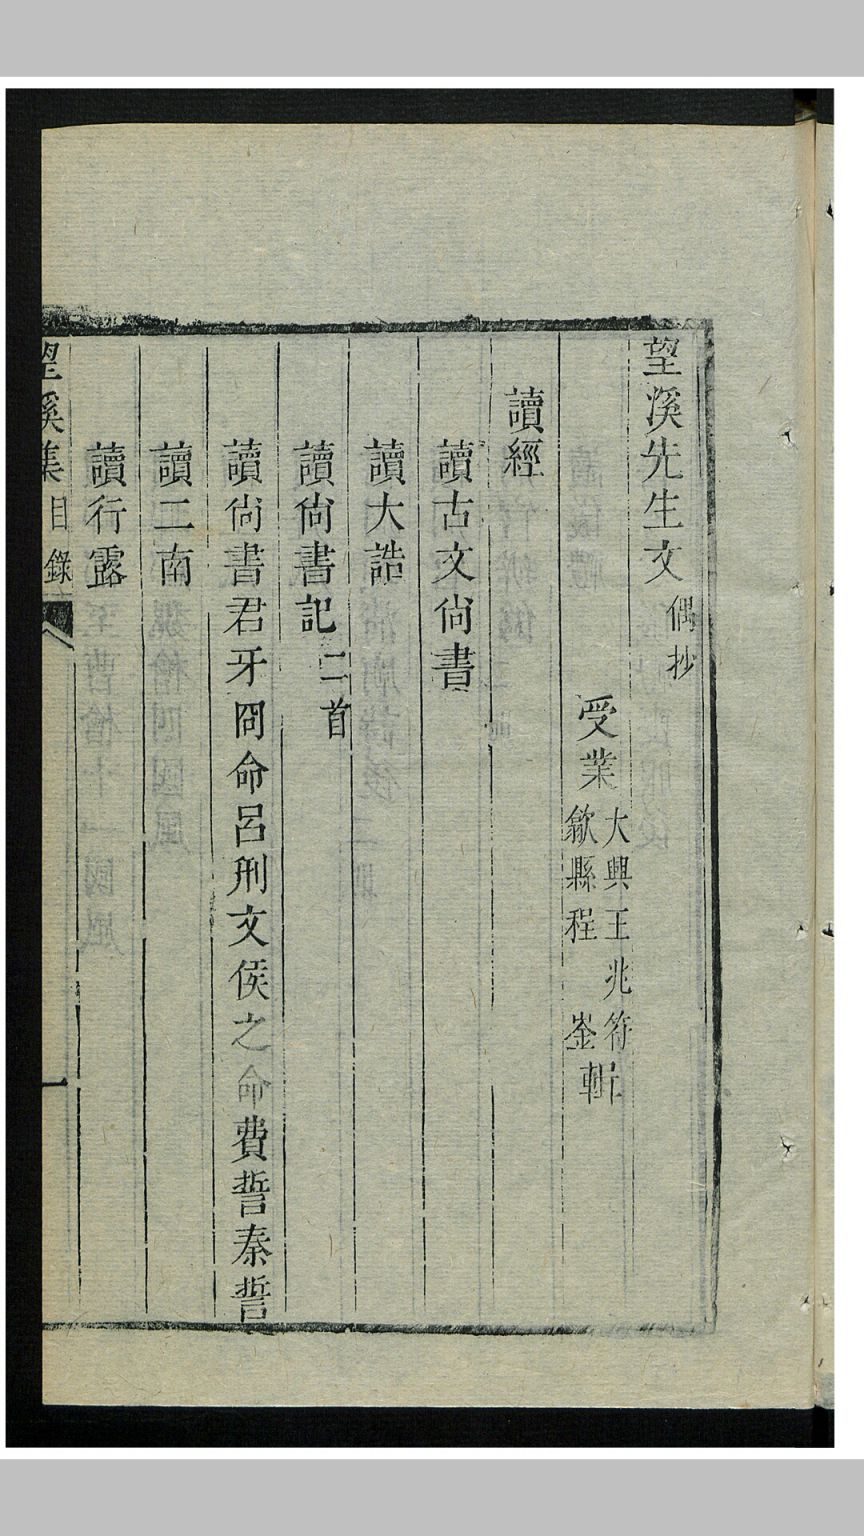 望溪先生文偶抄
受業大興王兆符歙縣程崟輯
讀經
讀古文尚書
讀大誥
讀尚書記二首
讀尚書君牙冏命呂刑文侯之命費誓秦誓
讀二南
讀行露
望溪集 目錄 一